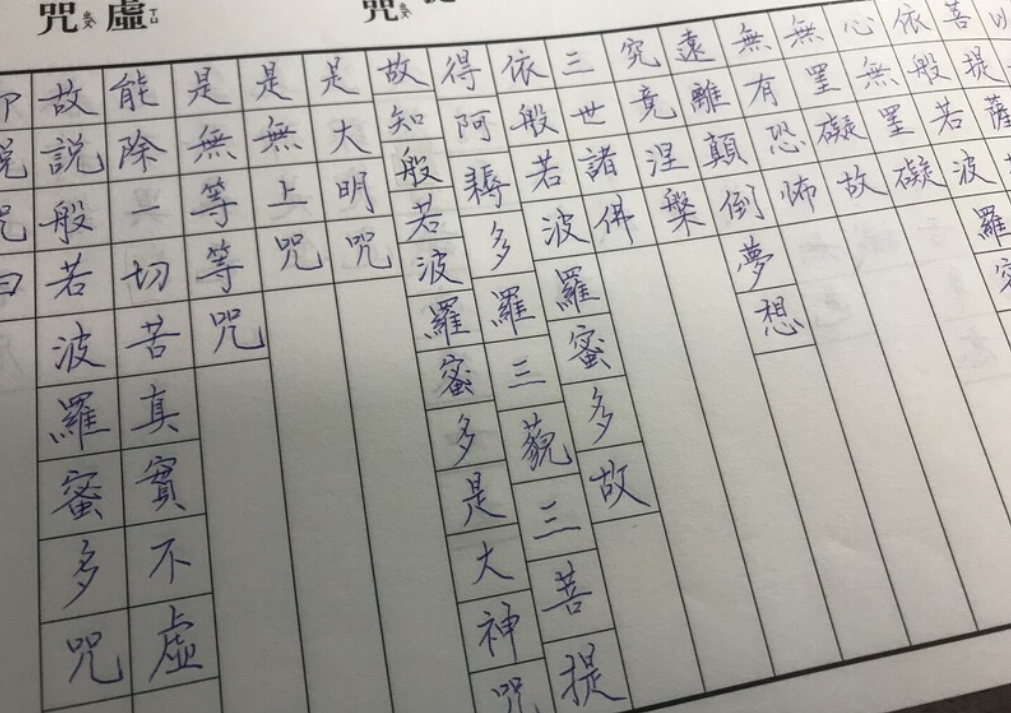 咒ㄓㄡˋ
虛ㄒㄩ
咒ㄓㄡˋ
以
菩提薩
依般若波羅蜜
心無罣礙
無罣礙故
無有恐怖
遠離顛倒夢想
究竟涅槃
三世諸佛
依般若波羅蜜多故
得阿耨多羅三藐三菩提
故知般若波羅蜜多是大神咒
是大明咒
是無上咒
是無等等咒
能除一切苦真實不虛
故說般若波羅蜜多咒
即說咒曰